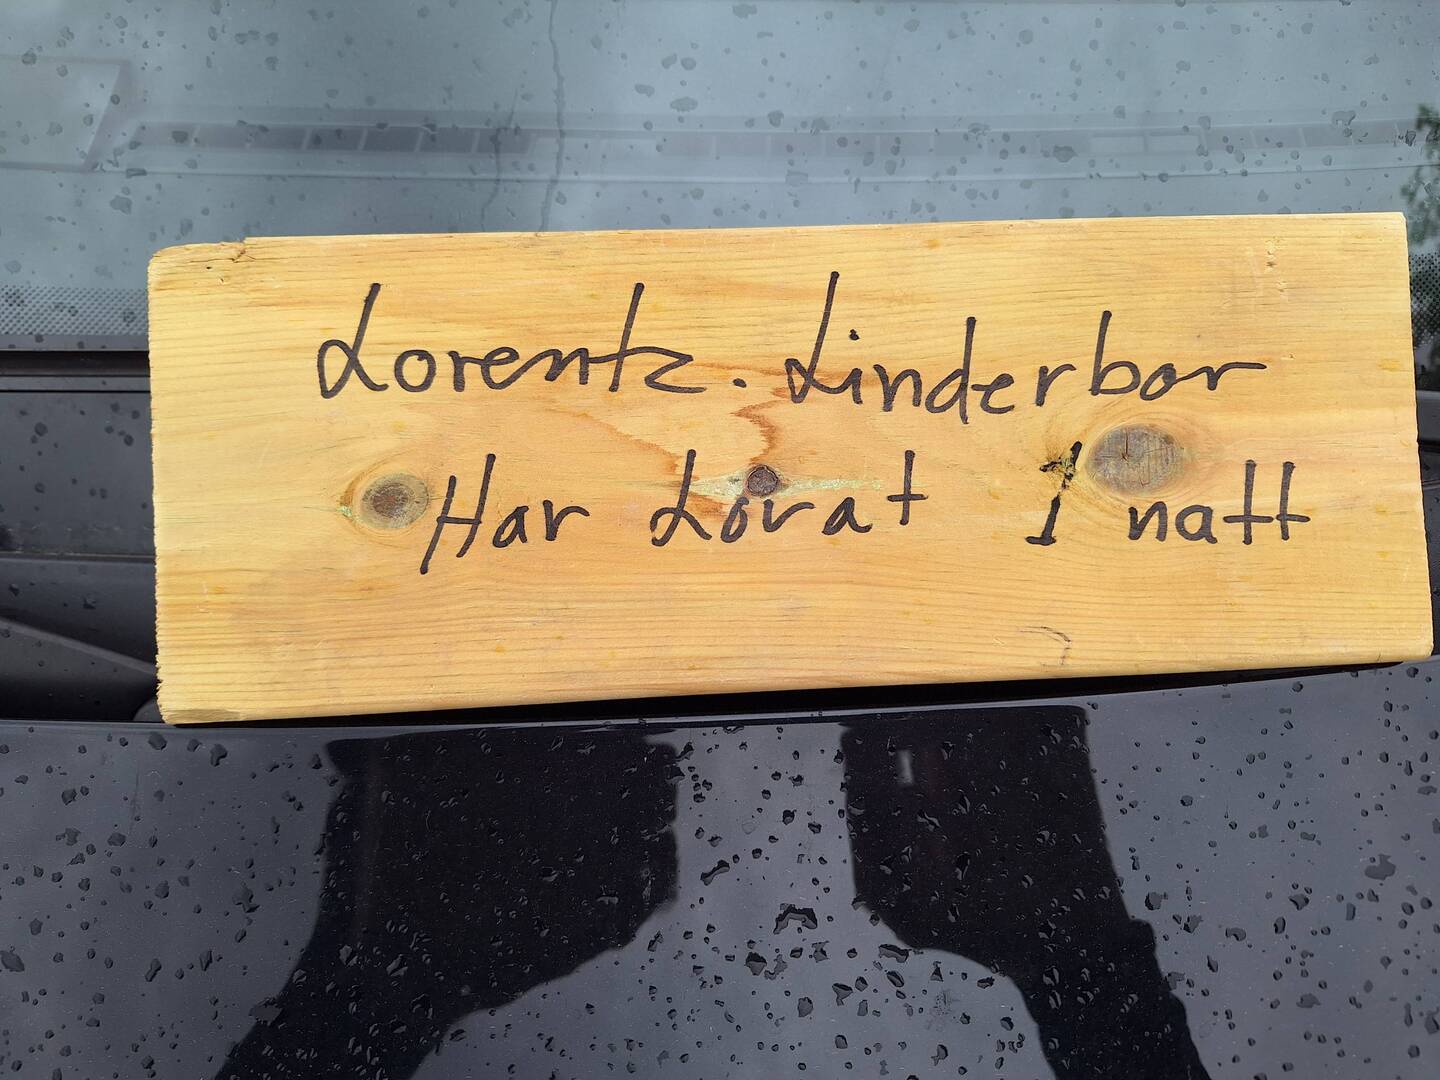 Lorentz. Linderbor
Har Lovat I natt